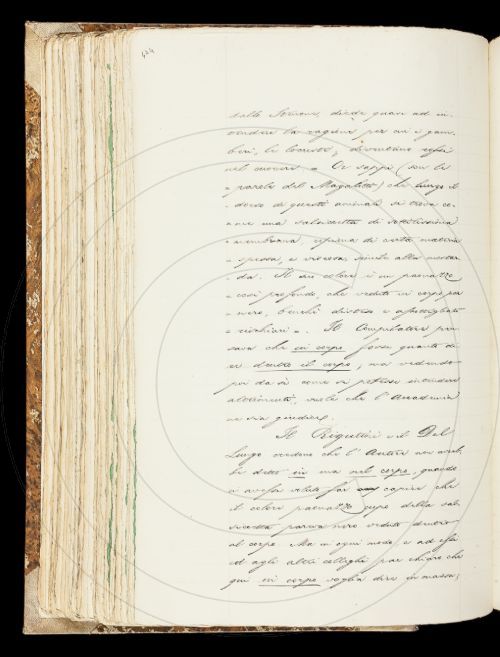 424
dallo Stenone, diede quasi ad in-
tendere la ragione per cui i gam-
beri, le locuste, diventano rossi
nel cuocersi = Or sappi (son le
= parole del Magalotti) che lungo il
= dorso di questi animali si trova co-
= me una salsiccetta di sottilissima
= membrana, ripiena di certa materia
= spessa, e viscosa simile alla mostar
= da. Il suo colore è un paonazzo
= così profondo, che veduto in corpo par
= nero, benchè disteso e assottigliato
= rischiari =. Il Compilatore pen-
sava che in corpo fosse quanto di-
re dentro il corpo, ma vedendo
poi da sè come si potesse intendere
altrimenti, vuole che l'Accademia
ne sia giudice.
Il Rigutini e il Del
Lungo credono che l'Autore non avreb-
be detto in ma nel corpo, quando
avesse voluto far capire che
il colore paonazzo cupo della sal-
siccetta pareva nero veduto dentro
al corpo. Ma in ogni modo e ad essi
ed agli altri colleghi par chiaro che
qui in corpo voglia dire in massa;